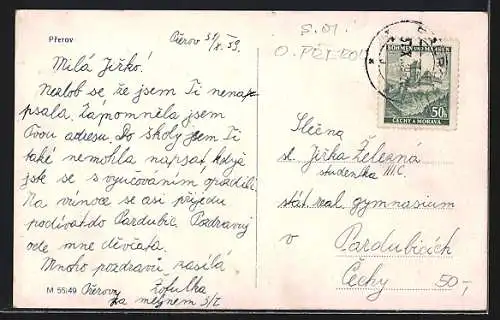 Přerov
Přerov 31/X. 39.
Milá Jiřko!
Nezlob se že jsem Ti nena-
psala. Zapomněla jsem
Tvou adresu. Do školy jsem Ti
také nemohla napsat, když
jste se s vyučováním opozdili.
Na vánoce se asi přijedu
podívat do Pardubic. Pozdravuj
ode mne děvčata.
Mnoho pozdravů zasílá
Žofulka
Přerov
za mlýnem 5/I
M 55/49
BÖHMEN UND MÄHREN
ČECHY A MORAVA
50h
Slečna
sl. Jiřka Železná
studentka III.C
stát. real. gymnasium
v Pardubicích
Čechy
50,-